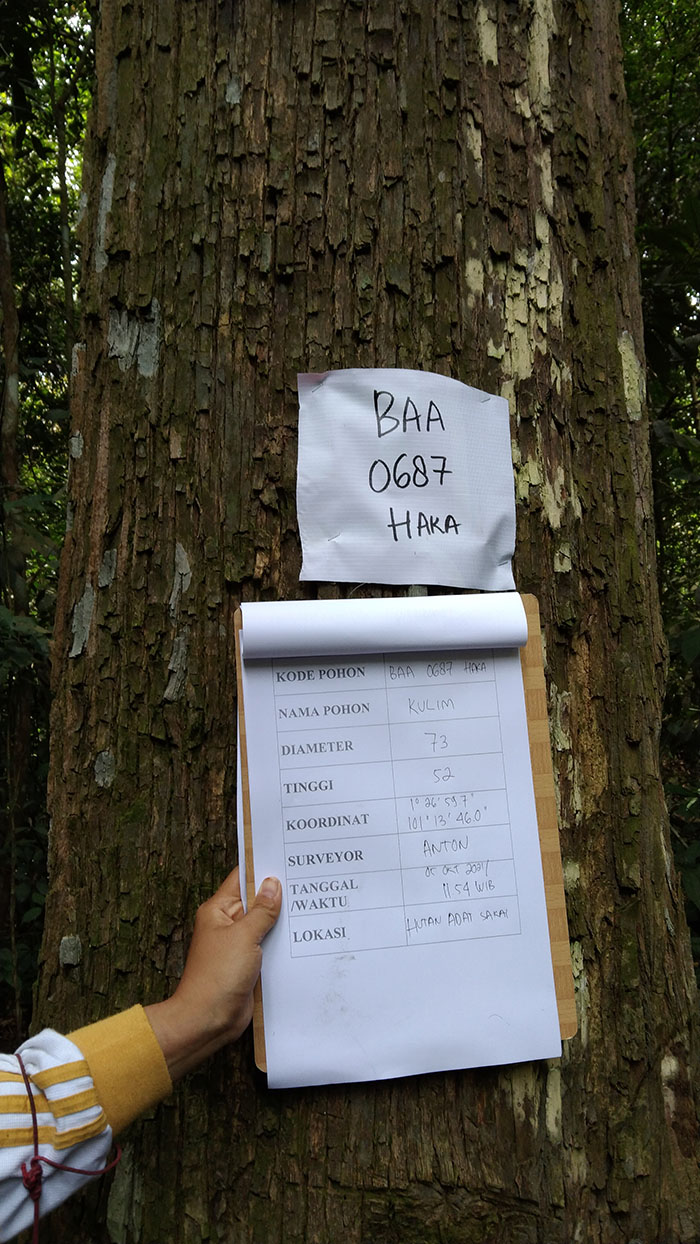 BAA
0687
HAKA
KODE POHON BAA 0687 HAKA
NAMA POHON KULIM
DIAMETER 73
TINGGI 52
KOORDINAT 1° 26' 59.7"
101° 13' 46.0"
SURVEYOR ANTON
TANGGAL OKT 2021/
/WAKTU 11 54 WIB
LOKASI HUTAN ADAT SAKAI